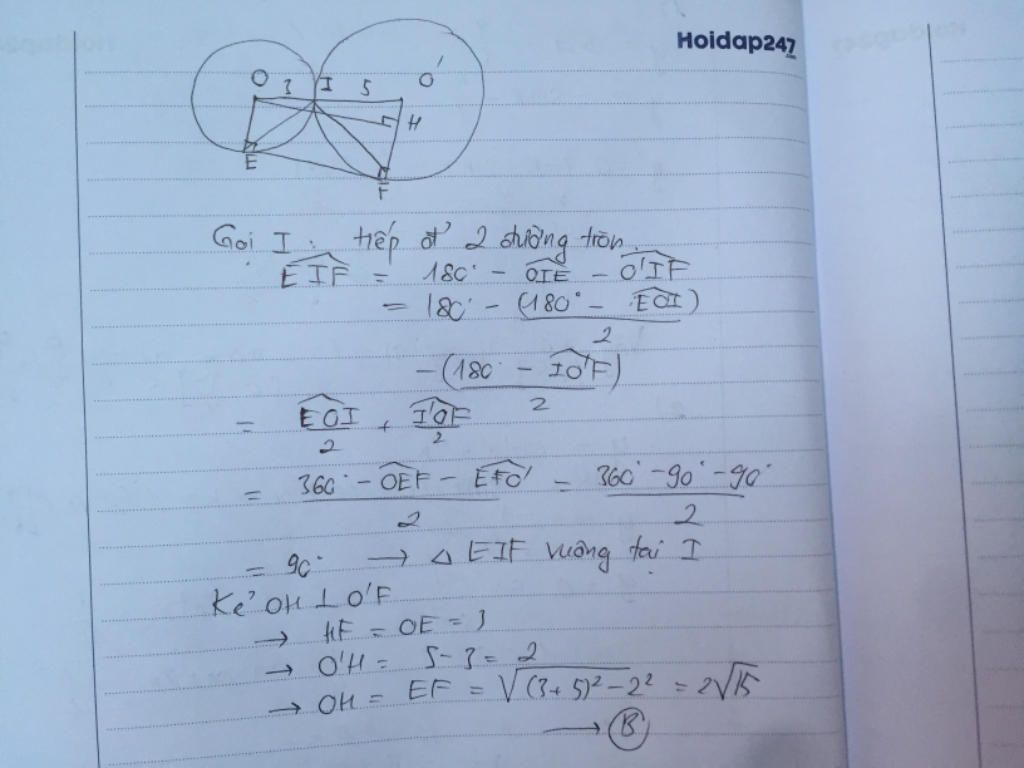 Hoidap247
.com
O 3 I 5 O'
H
E
F
Gọi I : tiếp đ' 2 đường tròn.
EIF = 180° - OIE - O'IF
= 180° - (180° - EOI)
2
- (180 - IO'F)
2
= EOI + I'OF
2 2
= 360° - OEF - EFO' = 360° - 90° - 90°
2 2
= 90° → Δ EIF vuông tại I
Kẻ OH ⊥ O'F
→ HF = OE = 3
→ O'H = 5 - 3 = 2
→ OH = EF = √(3+5)² - 2² = 2√15
→ B